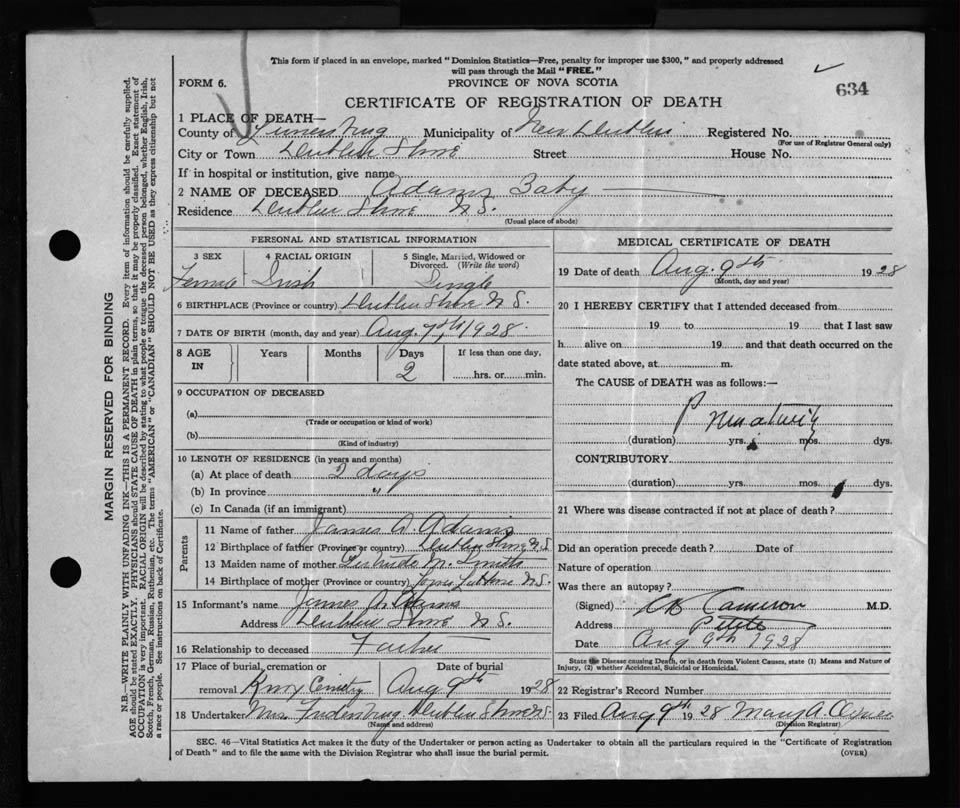 This form if placed in an envelope, marked "Dominion Statistics—Free, penalty for improper use $300," and properly addressed
will pass through the Mail "FREE."
FORM 6.
PROVINCE OF NOVA SCOTIA
634
CERTIFICATE OF REGISTRATION OF DEATH
1 PLACE OF DEATH—
County of Lunenburg Municipality of New Dublin Registered No.
(For use of Registrar General only)
City or Town Dublin Shore Street House No.
If in hospital or institution, give name
2 NAME OF DECEASED Adams Baby
Residence Dublin Shore N.S.
(Usual place of abode)
PERSONAL AND STATISTICAL INFORMATION
3 SEX 4 RACIAL ORIGIN 5 Single, Married, Widowed or Divorced. (Write the word)
Female Irish Single
6 BIRTHPLACE (Province or country) Dublin Shore N.S.
7 DATE OF BIRTH (month, day and year) Aug. 7th, 1928.
8 AGE IN Years Months Days If less than one day,
2 hrs. or min.
9 OCCUPATION OF DECEASED
(a)
(Trade or occupation or kind of work)
(b)
(Kind of industry)
10 LENGTH OF RESIDENCE (in years and months)
(a) At place of death 2 days
(b) In province "
(c) In Canada (if an immigrant)
Parents
11 Name of father James A. Adams
12 Birthplace of father (Province or country) Dublin Shore N.S.
13 Maiden name of mother Gertrude M. Smith
14 Birthplace of mother (Province or country) LaHave N.S.
15 Informant's name James A. Adams
Address Dublin Shore N.S.
16 Relationship to deceased Father
17 Place of burial, cremation or Date of burial
removal Cemetry Aug 9th 1928
18 Undertaker Mrs. Dublin Shore N.S.
(Name and address)
MEDICAL CERTIFICATE OF DEATH
19 Date of death Aug. 9th 1928
(Month, day and year)
20 I HEREBY CERTIFY that I attended deceased from
19 to 19 that I last saw
h alive on 19 and that death occurred on the
date stated above, at m.
The CAUSE of DEATH was as follows:—
Prematurity
(duration) yrs. mos. dys.
CONTRIBUTORY
(duration) yrs. mos. dys.
21 Where was disease contracted if not at place of death?
Did an operation precede death? Date of
Nature of operation
Was there an autopsy?
(Signed) Cameron M.D.
Address Petite
Date Aug 9th 1928
State the Disease causing Death, or in death from Violent Causes, state (1) Means and Nature of
Injury, (2) whether Accidental, Suicidal or Homicidal.
22 Registrar's Record Number
23 Filed Aug 9th 1928 Mary A.
(Division Registrar)
SEC. 46—Vital Statistics Act makes it the duty of the Undertaker or person acting as Undertaker to obtain all the particulars required in the "Certificate of Registration
of Death" and to file the same with the Division Registrar who shall issue the burial permit. (OVER)
MARGIN RESERVED FOR BINDING
N.B.—WRITE PLAINLY WITH UNFADING INK—THIS IS A PERMANENT RECORD. Every item of information should be carefully supplied.
AGE should be stated EXACTLY. PHYSICIANS should STATE CAUSE OF DEATH in plain terms, so that it may be properly classified. Exact statement of
OCCUPATION is very important. RACIAL ORIGIN will be described by stating to what people or tongue the deceased person belonged, whether English, Irish,
Scotch, French, German, Russian, Ruthenian, etc. The terms "AMERICAN" or "CANADIAN" SHOULD NOT BE USED as they express citizenship but not
a race or people. See instructions on back of Certificate.